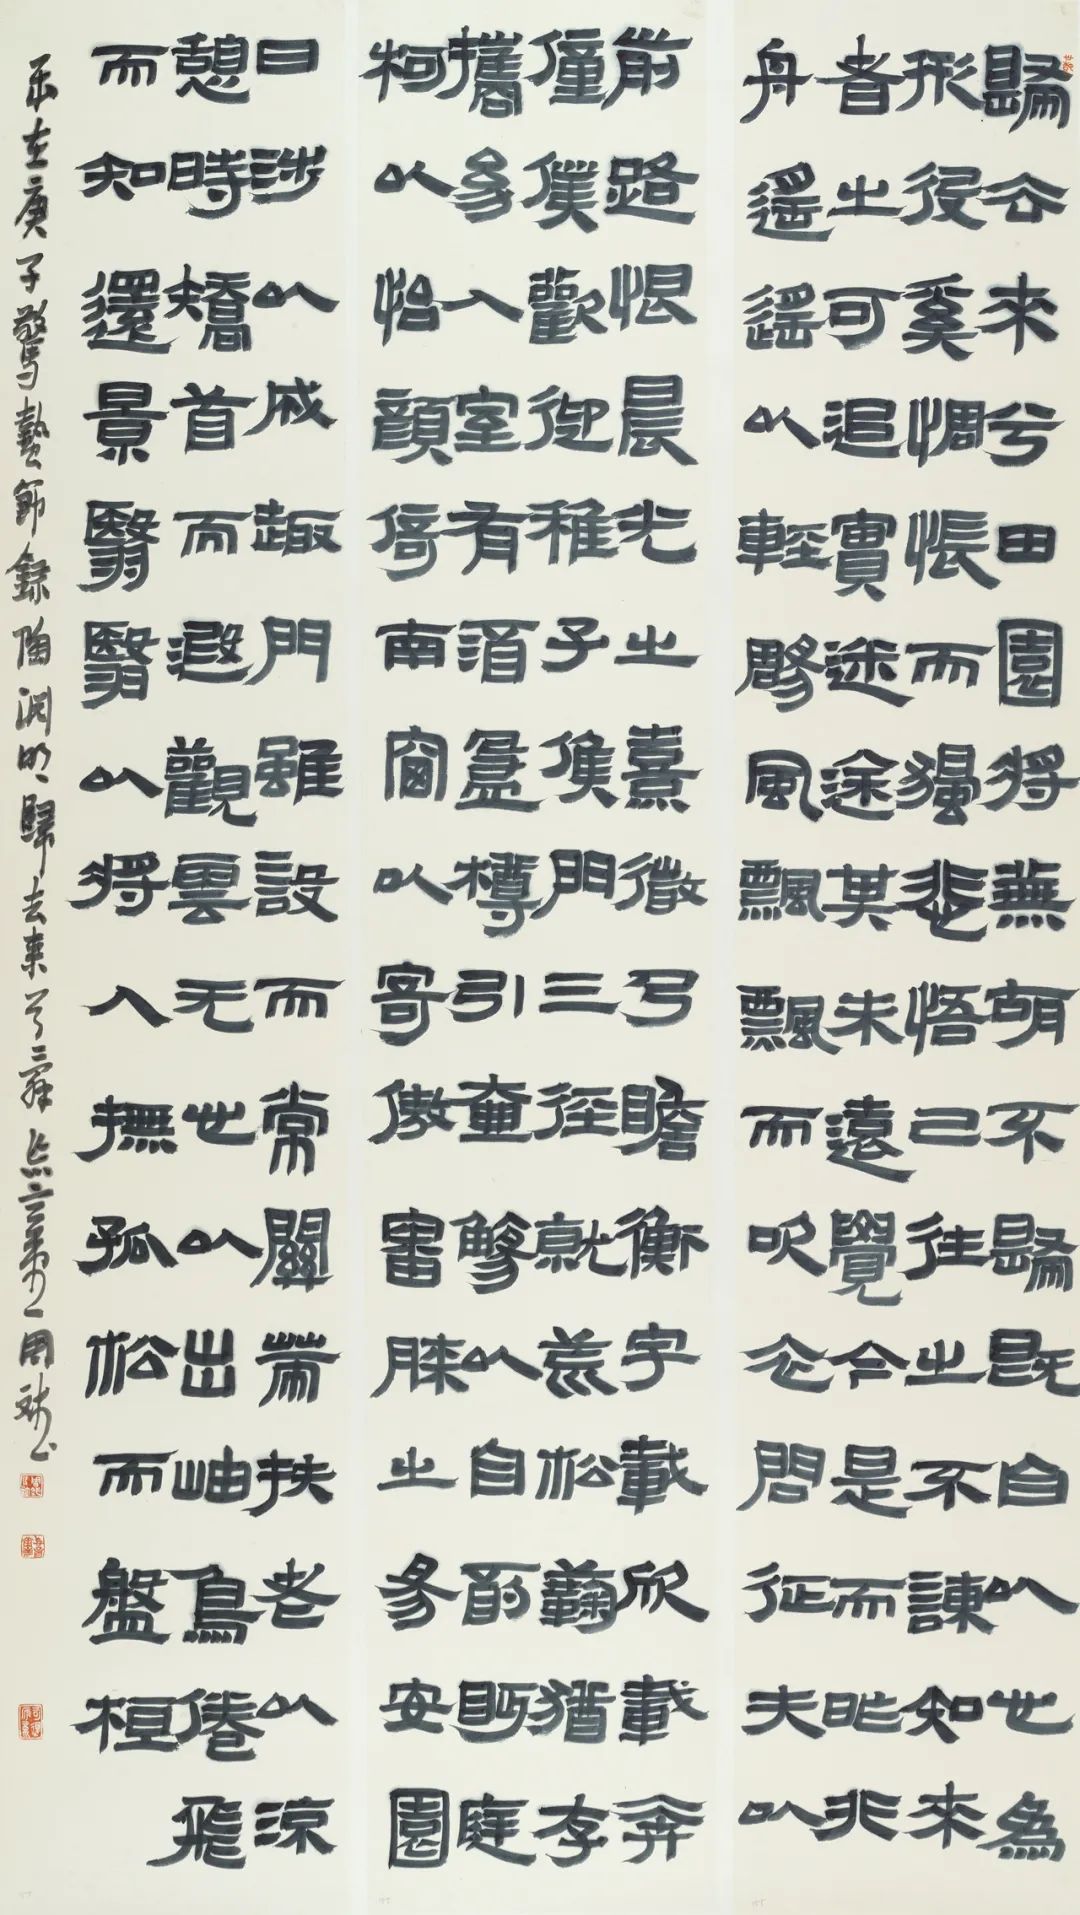 歸去来兮田園将蕪胡不歸既自以心為
形役奚惆悵而獨悲悟已往之不諫知來
者之可追實迷途其未遠覺今是而昨非
舟遙遙以輕颺風飄飄而吹衣問征夫以
前路恨晨光之熹微乃瞻衡宇載欣載奔
僮僕歡迎稚子候門三徑就荒松菊猶存
攜幼入室有酒盈樽引壺觴以自酌眄庭
柯以怡顏倚南窗以寄傲審膝之易安園
日涉以成趣門雖設而常關策扶老以流
憩時矯首而遐觀雲无心以出岫鳥倦飛
而知還景翳翳以将入撫孤松而盤桓
在庚子驚蟄節錄陶渊明歸去来兮辭